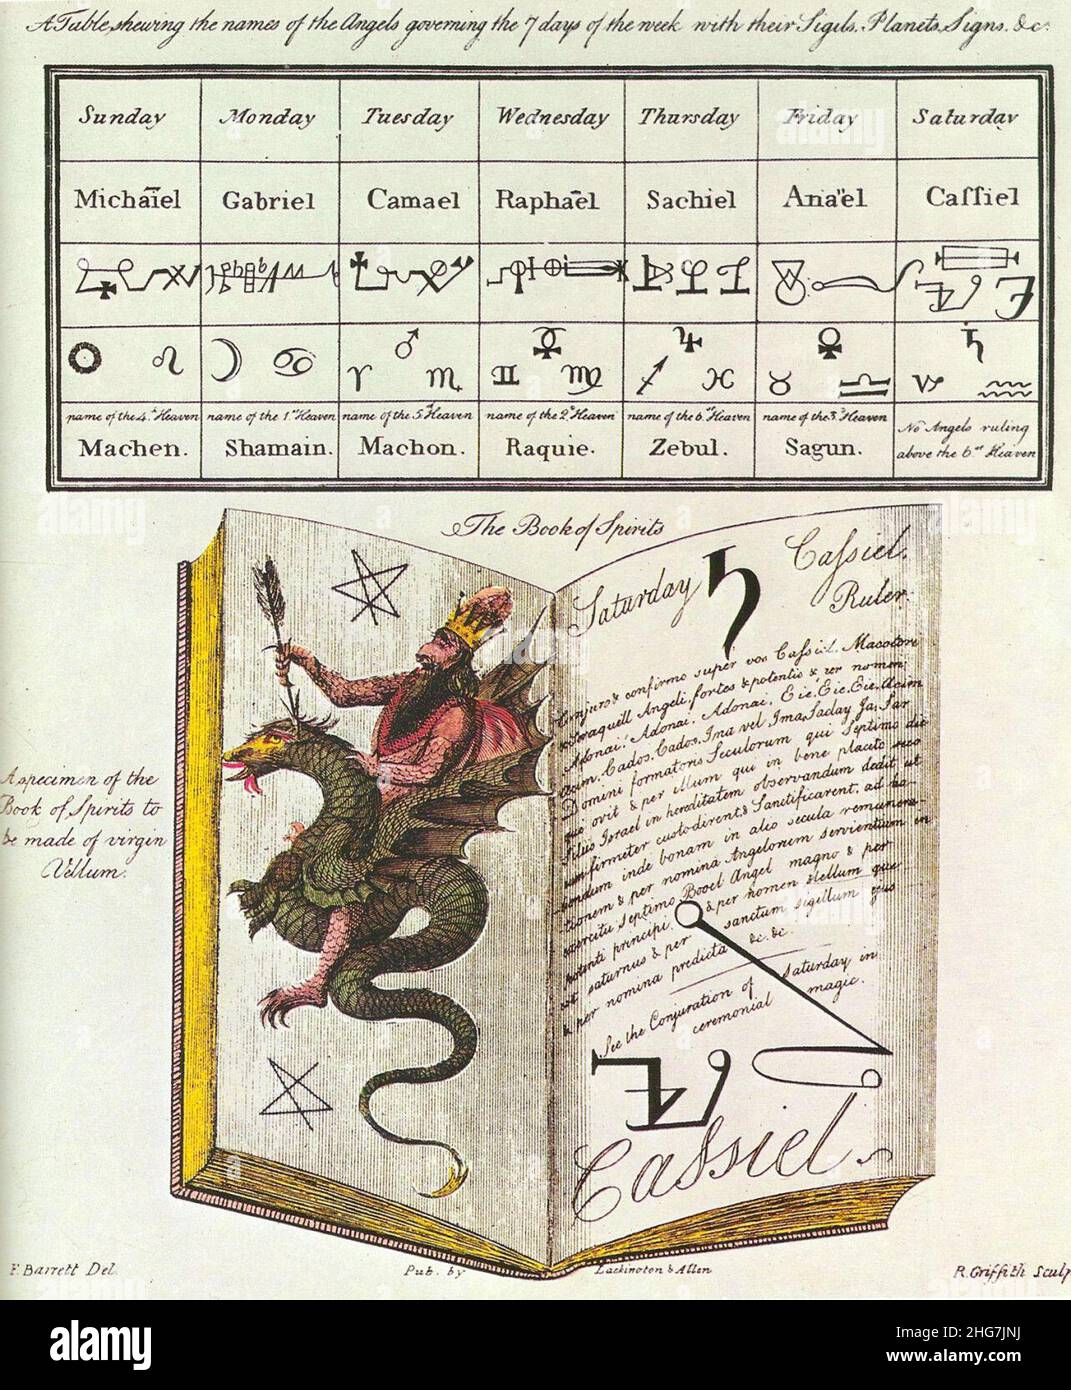 A Table, shewing the names of the Angels governing the 7 days of the week with their Sigils, Planets, Signs, &c.
Sunday Monday Tuesday Wednesday Thursday Friday Saturday
Michaïel Gabriel Camael Raphaël Sachiel Ana"el Caſſiel
♂ ☿ ♃ ♀ ♄
☉ ♌ ☽ ♋ ♈ ♏ ♊ ♍ ♐ ♓ ♉ ♎ ♑ ♒
name of the 4.th Heaven name of the 1.st Heaven name of the 5.th Heaven name of the 2.d Heaven name of the 6.th Heaven name of the 3.d Heaven No Angels ruling
Machen. Shamain. Machon. Raquie. Zebul. Sagun. above the 6.th Heaven
The Book of Spirits
A specimen of the
Book of Spirits to
be made of virgin
Vellum.
Saturday ♄ Caſsiel.
Ruler.
Conjuro & confirmo super vos Caſsiel, Masatori
& Seraquiell Angeli fortes & potentis & per nomen
Adonai, Adonai, Adonai, Eie, Eie, Eie, Acim
Acim, Cados, Cados, Ina vel Ima, Saday Ja, Sar
Domini formatoris Seculorum qui Septimo die
quievit & per illum qui in bene placito suo
filiis Israel in hereditatem observandum dedit ut
eum firmiter custodirent & Sanctificarent, ad ha-
bendum inde bonam in alio secula remunera-
tionem & per nomina Angelorum servientium in
exercitu septimo Booel Angel magno &
potenti principi & per nomen stellum que
est saturnus & per sanctum sigillum ejus
& per nomina predicta &c. &c.
See the Conjuration of Saturday in
ceremonial magic.
Caſsiel.
F. Barrett Del.
Pub. by Lackington & Allen
R. Griffith Sculp
alamy
Image ID: 2HG7JNJ
www.alamy.com